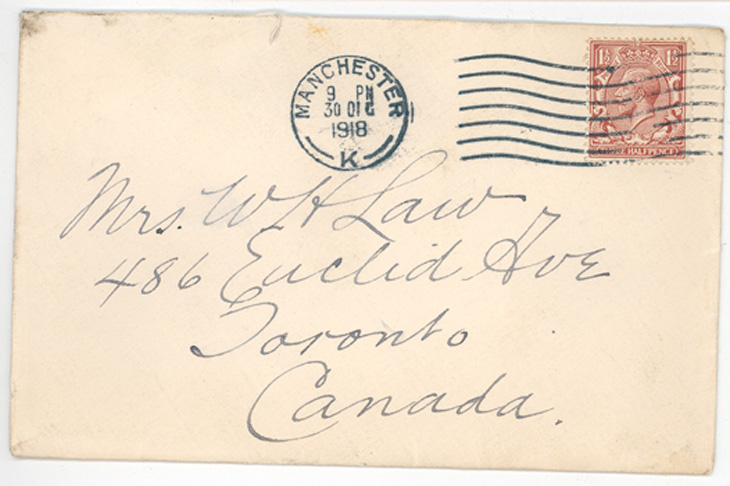 MANCHESTER
9 PM
1918
K
1½ 1½
HALFPENCE
Mrs. W H Law
486 Euclid Ave
Toronto
Canada.